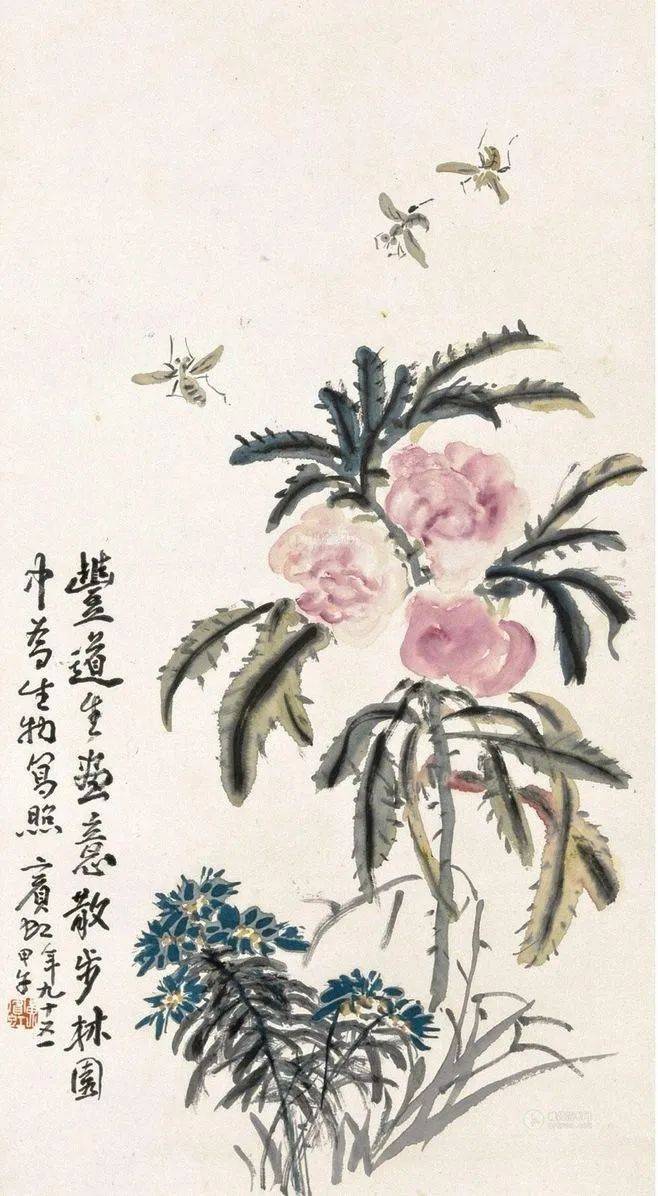 豐道生畫意散步林園
中為生物寫照 賓虹
年九十又一
甲午